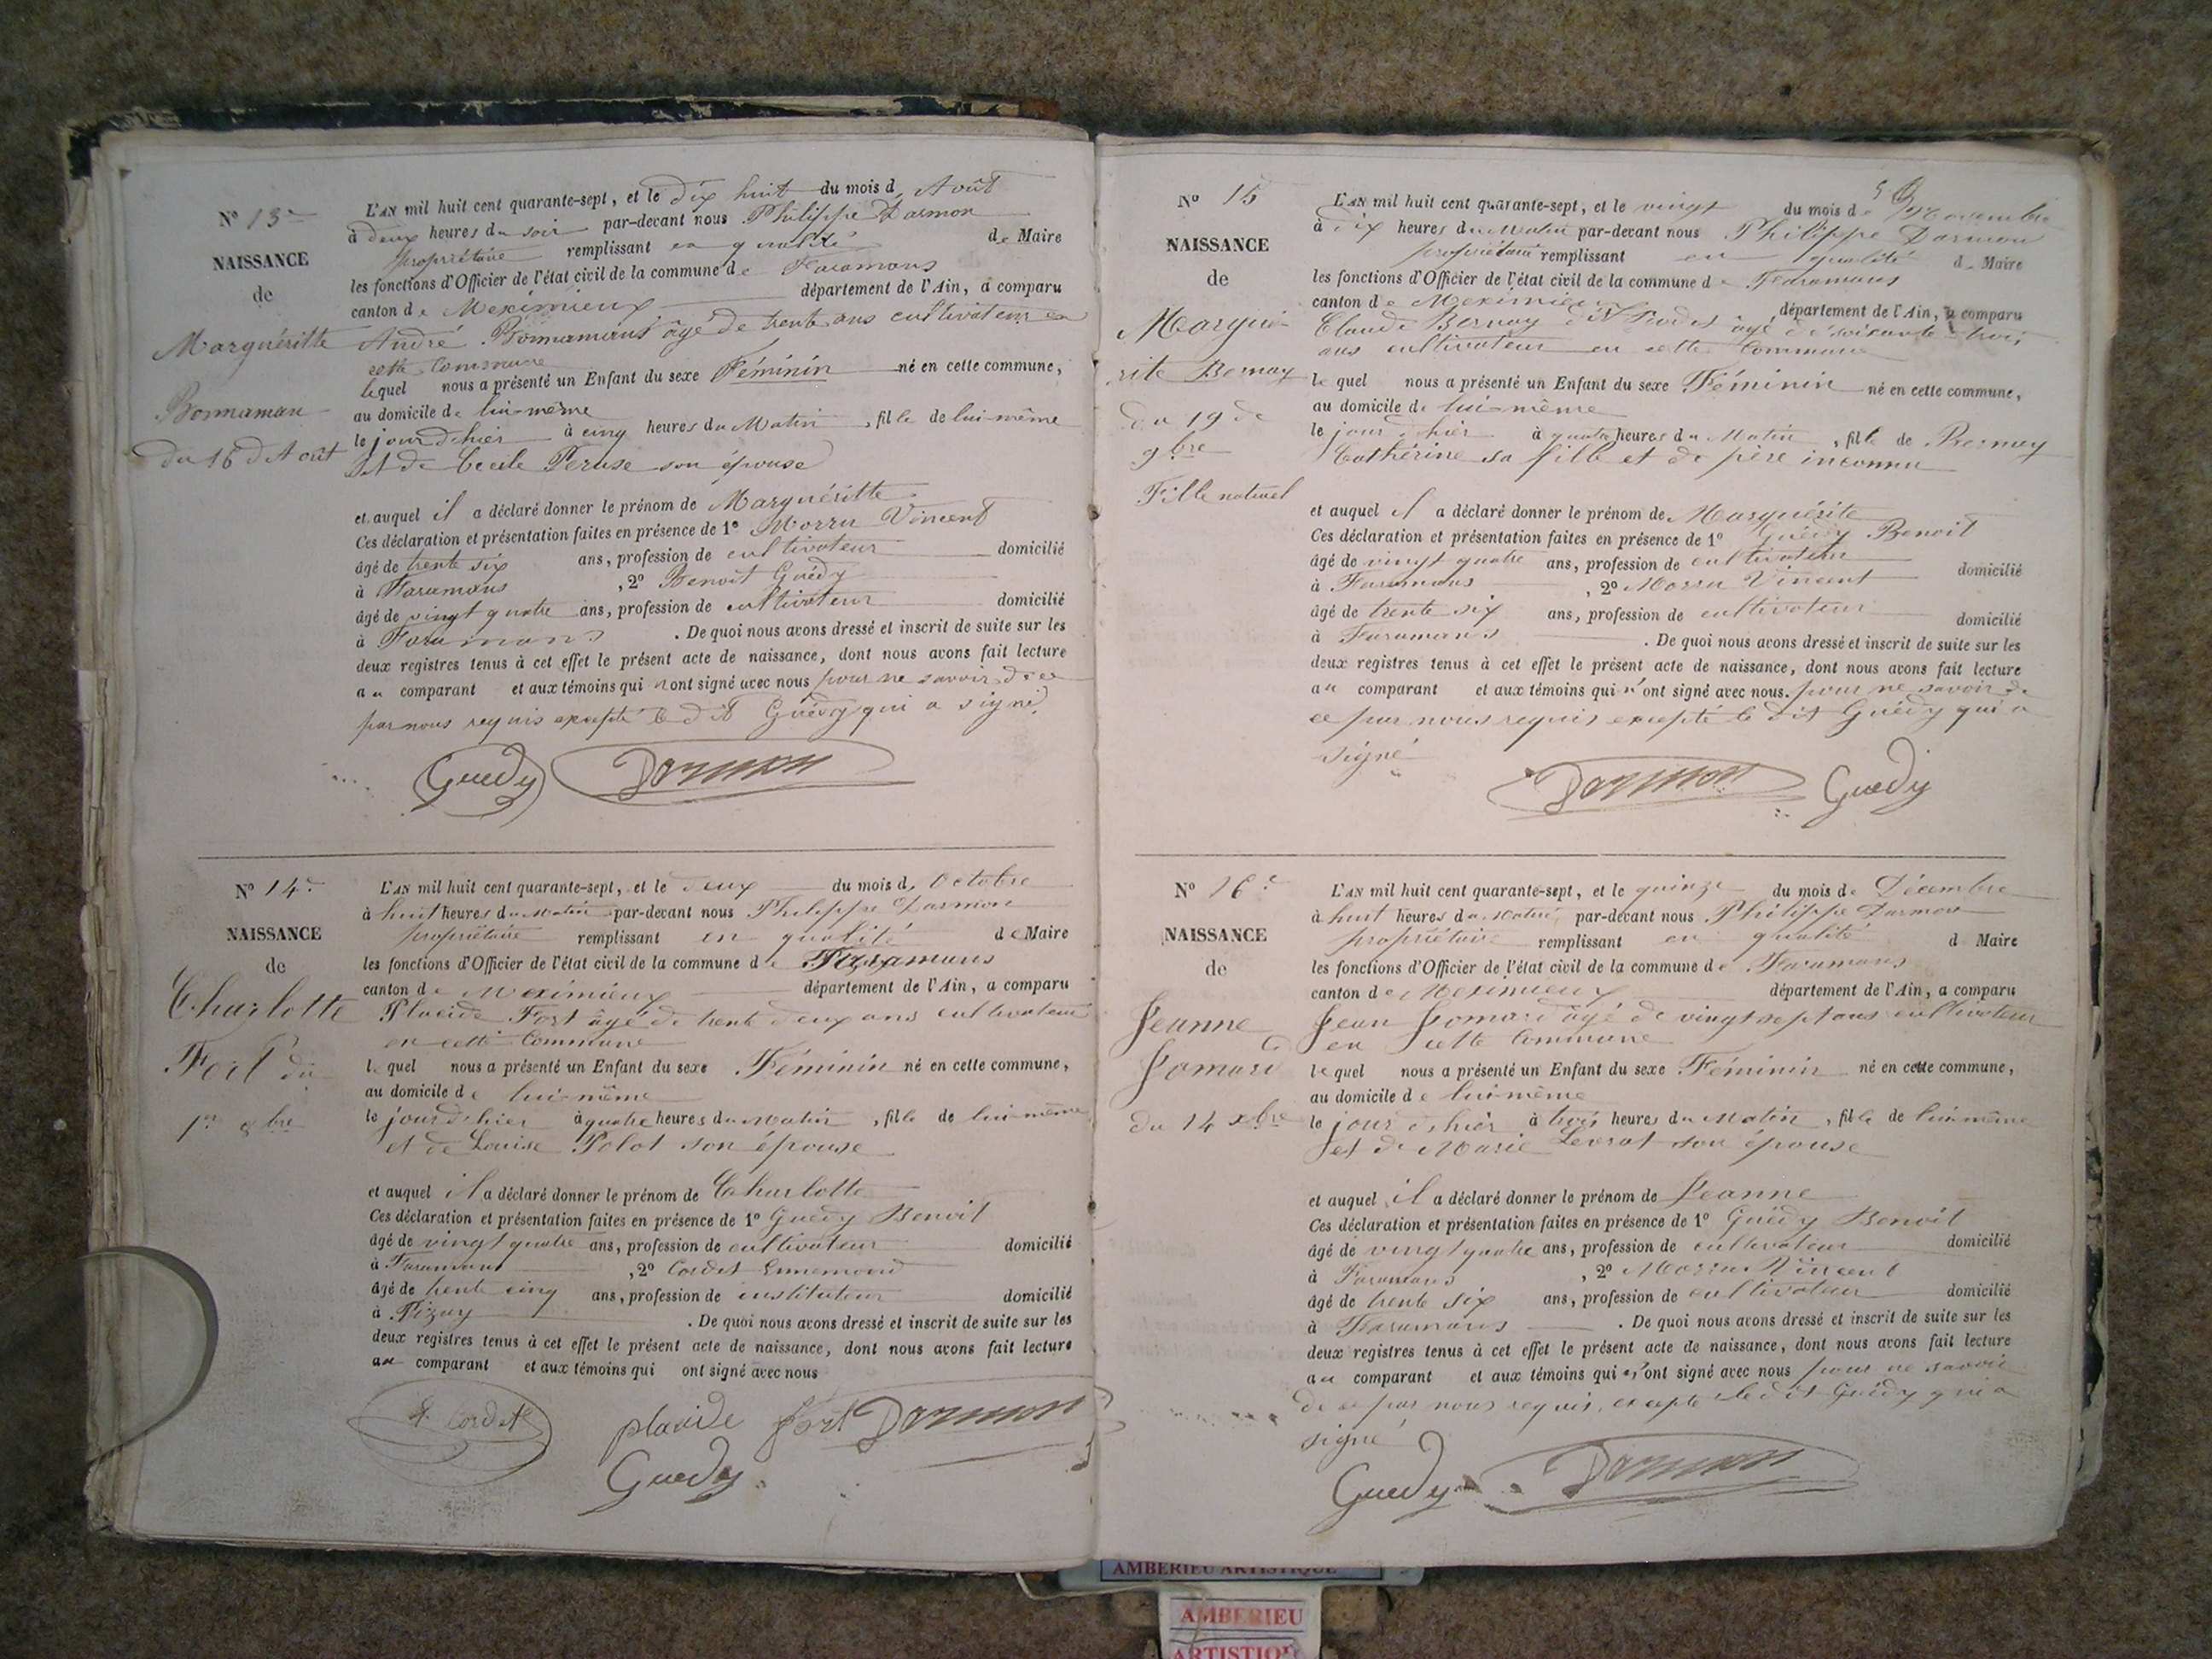 N° 13e
NAISSANCE
de
Marguéritte
Bonnaman
du 16 d'Août
L'AN mil huit cent quarante-sept, et le dix huit du mois d Août
à deux heures du soir par-devant nous Philippe Darmon
propriétaire remplissant en qualité de Maire
les fonctions d'Officier de l'état civil de la commune de Faramans
canton de Meximieux département de l'Ain, a comparu
André Bonnamans âgé de trente ans cultivateur en
cette commune
lequel nous a présenté un Enfant du sexe Féminin né en cette commune,
au domicile de lui-même
le jour d'hier à cinq heures du Matin, fille de lui-même
et de Cécile Peruse son épouse
et auquel il a déclaré donner le prénom de Marguéritte
Ces déclaration et présentation faites en présence de 1° Morru Vincent
âgé de trente six ans, profession de cultivateur domicilié
à Faramans, 2° Benoit Guédy
âgé de vingt quatre ans, profession de cultivateur domicilié
à Faramans. De quoi nous avons dressé et inscrit de suite sur les
deux registres tenus à cet effet le présent acte de naissance, dont nous avons fait lecture
au comparant et aux témoins qui n'ont signé avec nous pour ne savoir de ce
par nous requis excepté le dit Guédy qui a signé
Guedy Darmon
N° 14e
NAISSANCE
de
Charlotte
Fort du
1er 8bre
L'AN mil huit cent quarante-sept, et le deux du mois d'Octobre
à huit heures du matin par-devant nous Philippe Darmon
propriétaire remplissant en qualité de Maire
les fonctions d'Officier de l'état civil de la commune de Faramans
canton de Meximieux département de l'Ain, a comparu
Placide Fort âgé de trente deux ans cultivateur
en cette Commune
lequel nous a présenté un Enfant du sexe Féminin né en cette commune,
au domicile de lui-même
le jour d'hier à quatre heures du matin, fille de lui-même
et de Louise Polot son épouse
et auquel il a déclaré donner le prénom de Charlotte
Ces déclaration et présentation faites en présence de 1° Guédy Benoit
âgé de vingt quatre ans, profession de cultivateur domicilié
à Faramans, 2° Cordet Ennemond
âgé de trente cinq ans, profession de instituteur domicilié
à Pizay. De quoi nous avons dressé et inscrit de suite sur les
deux registres tenus à cet effet le présent acte de naissance, dont nous avons fait lecture
au comparant et aux témoins qui ont signé avec nous
Cordet placide fort Darmon
Guedy
N° 15
NAISSANCE
de
Margué
rite Bernay
du 19 de
9bre
Fille naturel
L'AN mil huit cent quarante-sept, et le vingt du mois de Novembre
à dix heures du Matin par-devant nous Philippe Darmon
propriétaire remplissant en qualité de Maire
les fonctions d'Officier de l'état civil de la commune de Faramans
canton de Meximieux département de l'Ain, a comparu
Claude Bernay dit âgé de soixante trois
ans cultivateur en cette Commune
lequel nous a présenté un Enfant du sexe Féminin né en cette commune,
au domicile de lui-même
le jour d'hier à quatre heures du Matin, fille de Bernay
Cathérine sa fille et de père inconnu
et auquel il a déclaré donner le prénom de Marguérite
Ces déclaration et présentation faites en présence de 1° Guédy Benoit
âgé de vingt quatre ans, profession de cultivateur domicilié
à Faramans, 2° Morru Vincent
âgé de trente six ans, profession de cultivateur domicilié
à Faramans. De quoi nous avons dressé et inscrit de suite sur les
deux registres tenus à cet effet le présent acte de naissance, dont nous avons fait lecture
au comparant et aux témoins qui n'ont signé avec nous. pour ne savoir de
ce par nous requis excepté le dit Guédy qui a
signé
Darmon Guedy
N° 16e
NAISSANCE
de
Jeanne
Jomard
du 14 xbre
L'AN mil huit cent quarante-sept, et le quinze du mois de Décembre
à huit heures du matin par-devant nous Philippe Darmon
propriétaire remplissant en qualité d Maire
les fonctions d'Officier de l'état civil de la commune de Faramans
canton de Meximieux département de l'Ain, a comparu
Jean Jomard âgé de vingt sept ans cultivateur
en cette Commune
lequel nous a présenté un Enfant du sexe Féminin né en cette commune,
au domicile de lui-même
le jour d'hier à trois heures du Matin, fille de lui-même
et de Marie Levrat son épouse
et auquel il a déclaré donner le prénom de Jeanne
Ces déclaration et présentation faites en présence de 1° Guédy Benoit
âgé de vingt quatre ans, profession de cultivateur domicilié
à Faramans, 2° Morru Vincent
âgé de trente six ans, profession de cultivateur domicilié
à Faramans. De quoi nous avons dressé et inscrit de suite sur les
deux registres tenus à cet effet le présent acte de naissance, dont nous avons fait lecture
au comparant et aux témoins qui n'ont signé avec nous pour ne savoir
de ce par nous requis, excepté le dit Guédy qui a
signé
Guedy Darmon
AMBERIEU ARTISTIQUE
AMBERIEU
ARTISTIQUE